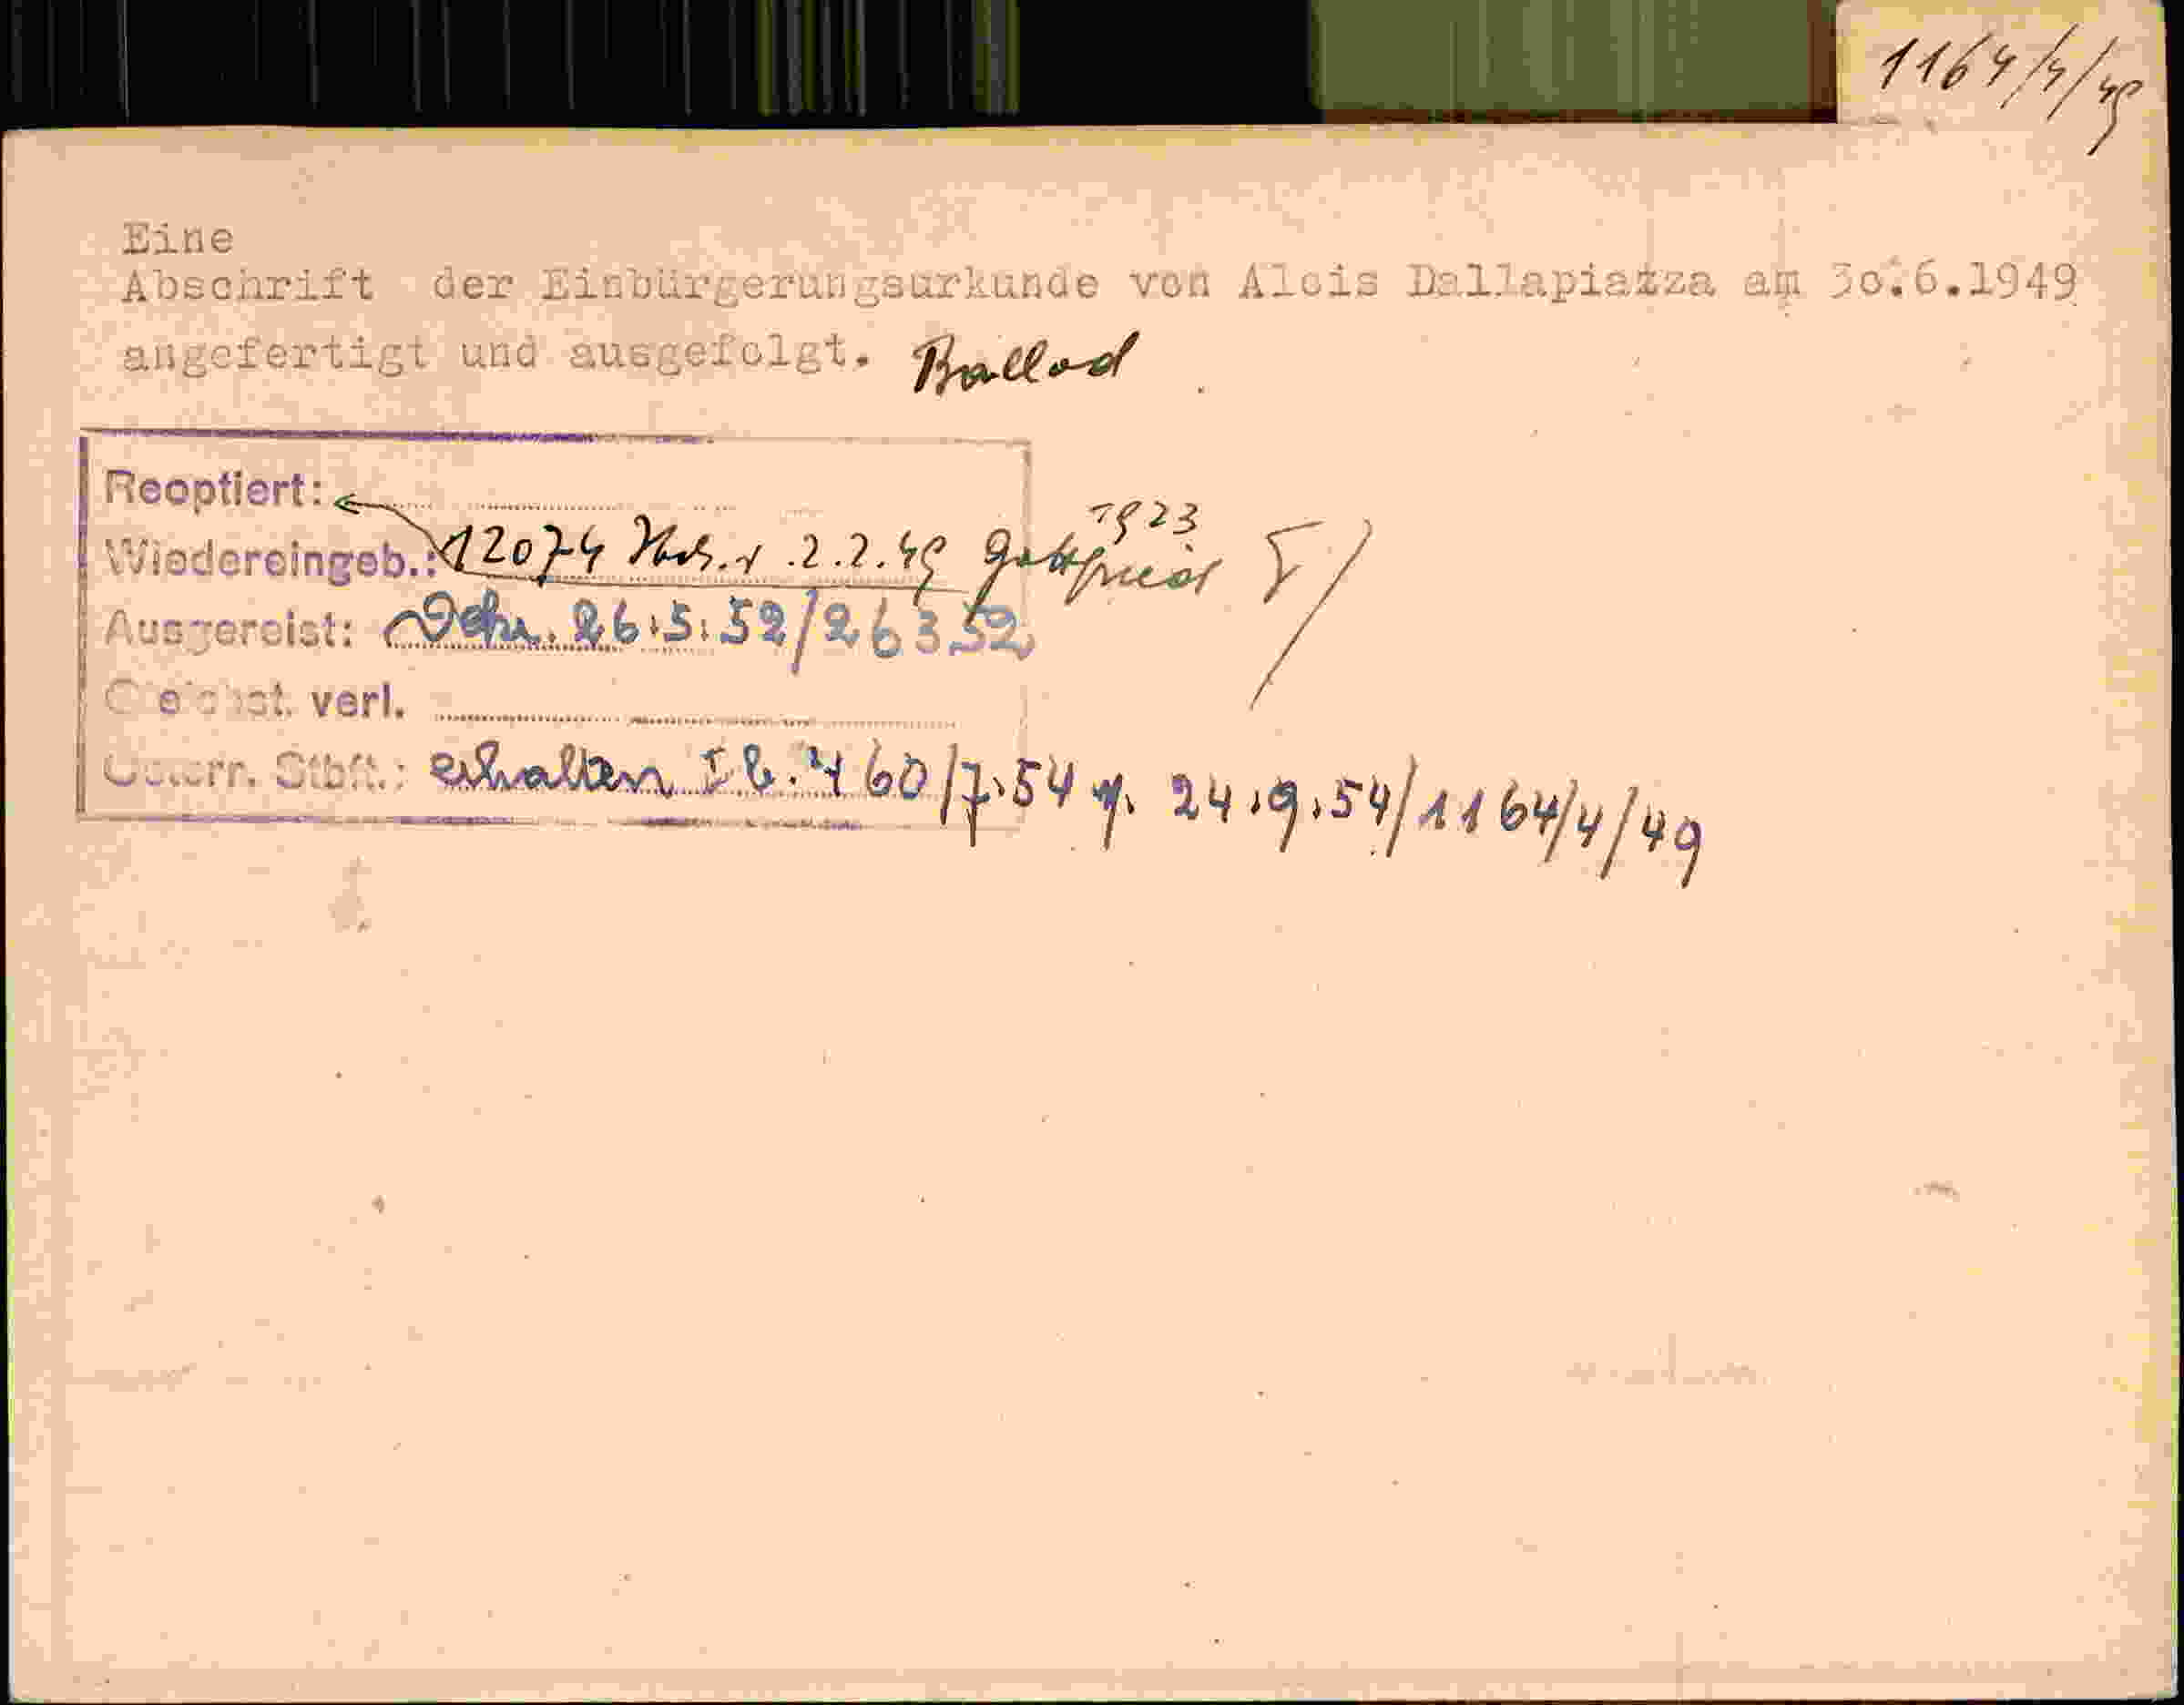 1164/4/49
Eine
Abschrift der Einbürgerungsurkunde von Alois Dallapiazza am 30.6.1949
angefertigt und ausgefolgt. Ballod
Reoptiert:
1923
Wiedereingeb.: 12074 v. 2.2.49 Gottfried
Ausgereist: 26.5.52/26352
Gleichst. verl.
Österr. Stbft.: erhalten I b. 460/7.54 v. 24.9.54/1164/4/49